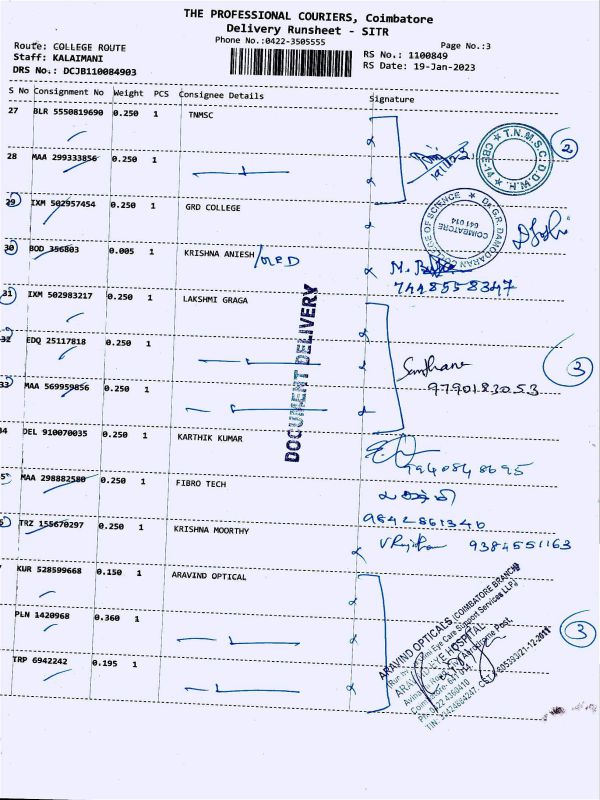 THE PROFESSIONAL COURIERS, Coimbatore
Delivery Runsheet - SITR
Phone No.:0422-3505555
Page No.:3
Route: COLLEGE ROUTE
Staff: KALAIMANI
DRS No.: DCJB110084903
RS No.: 1100849
RS Date: 19-Jan-2023
S No Consignment No Weight PCS Consignee Details Signature
27 BLR 5550819690 0.250 1 TNMSC
28 MAA 299333856 0.250 1
2
T.N.M.S.C.D.D.W.H. CBE-14
29 IXM 502957454 0.250 1 GRD COLLEGE
Dr. G.R. DAMODARAN COLLEGE OF SCIENCE
COIMBATORE
641 014
30 BOD 356803 0.005 1 KRISHNA ANIESH
7448558347
31 IXM 502983217 0.250 1 LAKSHMI GRAGA
DOCUMENT DELIVERY
32 EDQ 25117818 0.250 1
3
33 MAA 569959856 0.250 1
9790183053
34 DEL 910070035 0.250 1 KARTHIK KUMAR
9940848695
5 MAA 298882580 0.250 1 FIBRO TECH
9842861340
6 TRZ 155670297 0.250 1 KRISHNA MOORTHY
9384551163
7 KUR 528599668 0.150 1 ARAVIND OPTICAL
PLN 1420968 0.360 1
3
TRP 6942242 0.195 1
ARAVIND OPTICALS (COIMBATORE BRANCH)
Eye Care Support Services LLP
ARAVIND EYE HOSPITAL
Aerodrome Post,
Coimbatore- 641
Ph: 0422 4360410